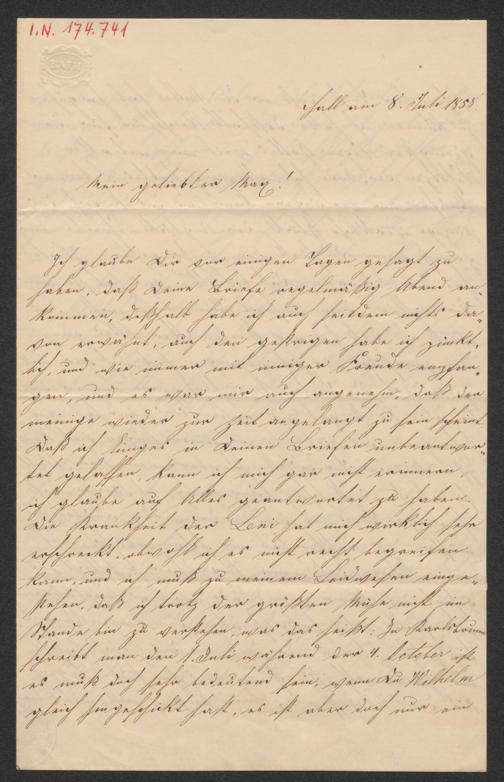 I.N. 174.741
BATH
Hall am 8. Juli 1858
Mein geliebter Max!
Ich glaube Dir vor einigen Tagen gesagt zu
haben, daß Deine Briefe regelmäßig Abend an-
kommen, deßhalb habe ich auch seitdem nichts da-
von erwähnt, auch den gestrigen habe ich pünkt-
lich, und wie immer mit inniger Freude empfan-
gen, und es war mir auch angenehm, daß der
meinige wieder zur Zeit angelangt zu sein scheint
Daß ich Einiges in Deinen Briefen unbeantwor-
tet gelassen kann ich mich gar nicht erinnern,
ich glaube auf Alles geantwortet zu haben.
Die Krankheit der Leni hat mich wirklich sehr
erschreckt, obwohl ich es nicht recht begreifen
kann, und ich muß zu meinem Leidwesen einge-
stehen, daß ich trotz der größten Mühe nicht im
Stande bin zu verstehen, was das heißt: In
schreibt man den 1. Juli während der 4. October ist
es muß doch sehr bedeutend sein, wenn Du Wilhelm
gleich hingeschickt hast, es ist aber doch nur ein